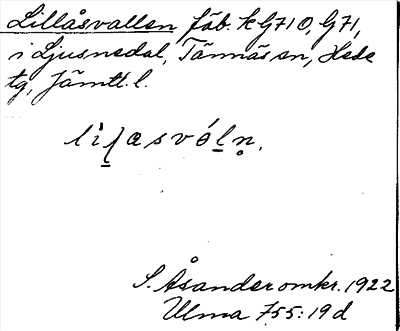 Lillåsvallen fäb. k G71 O, G71,
i Ljusnedal, Tännäs sn, Hede
tg, Jämtl. l.
S. Åsander omkr. 1922
Ulma 755:19d